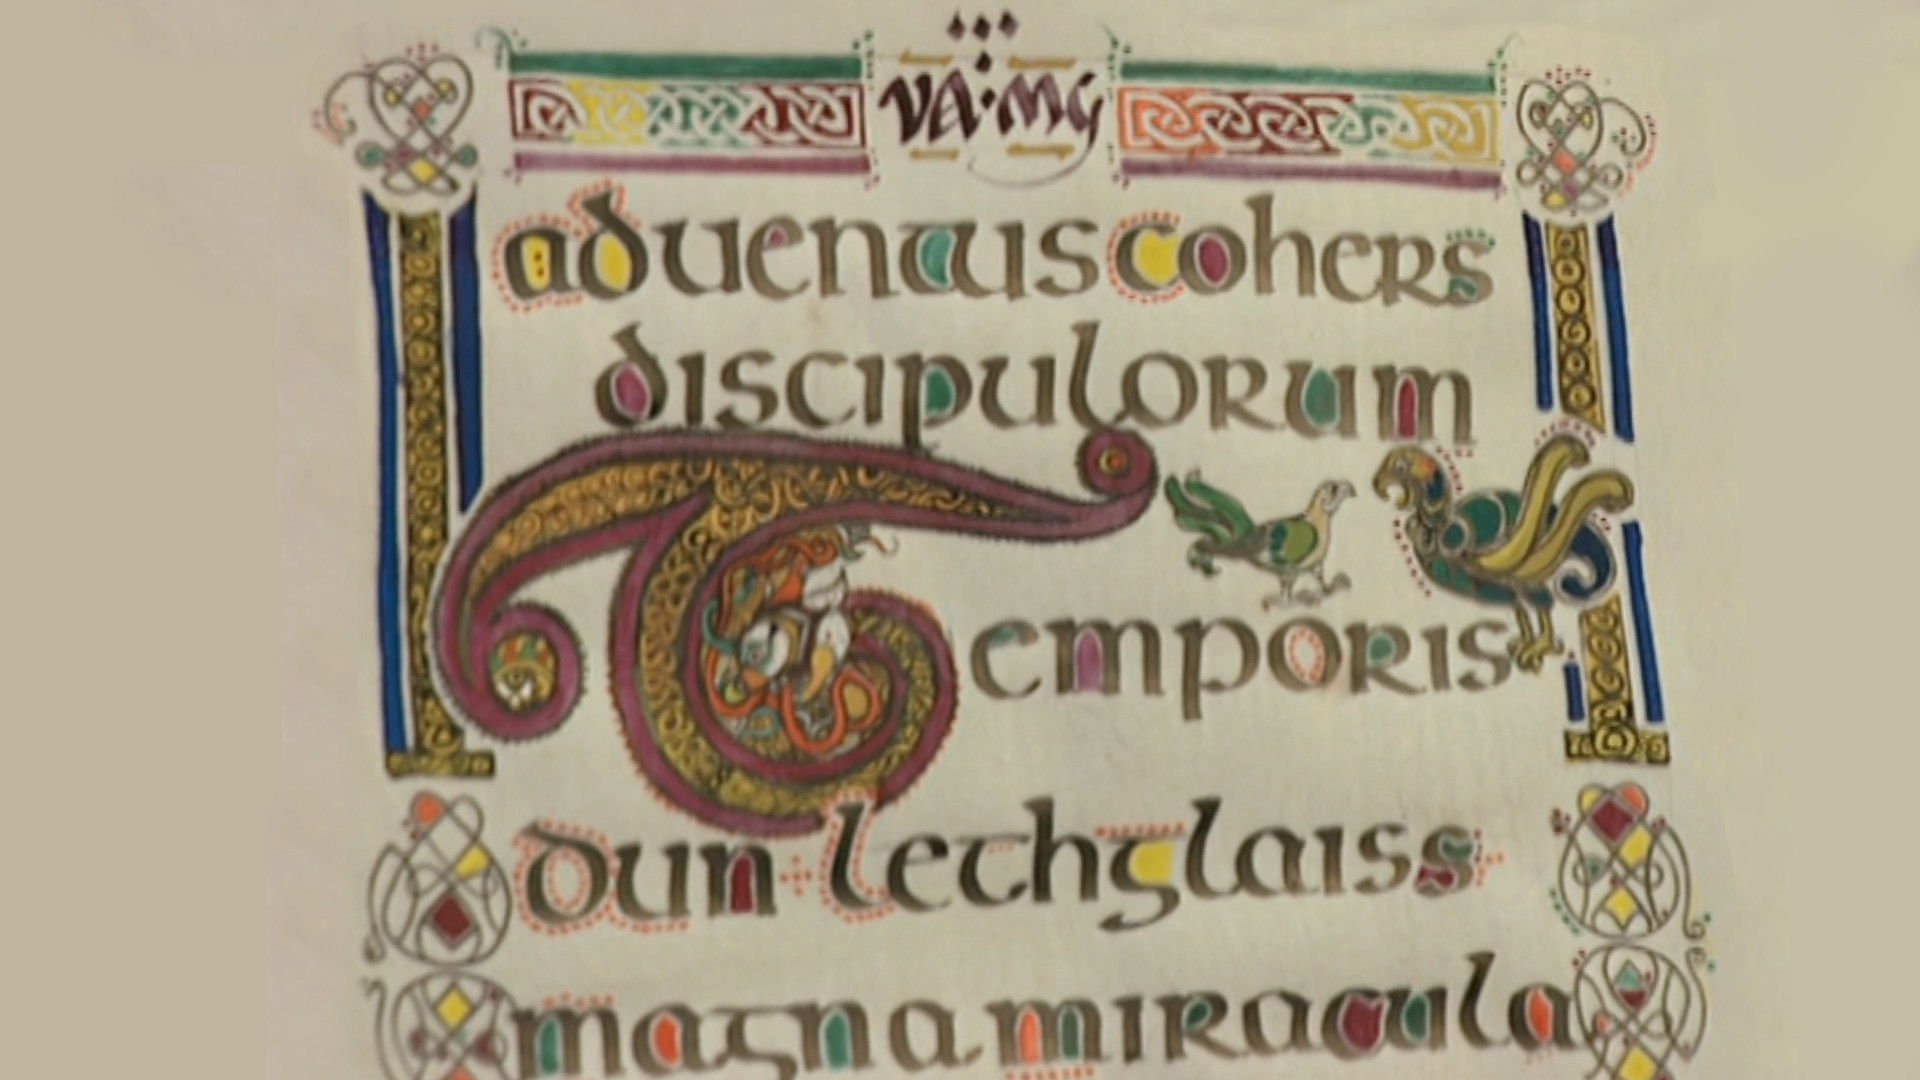 VA:MG
aduentus cohers
discipulorum
Temporis
dun lethglaiss
magna miracula